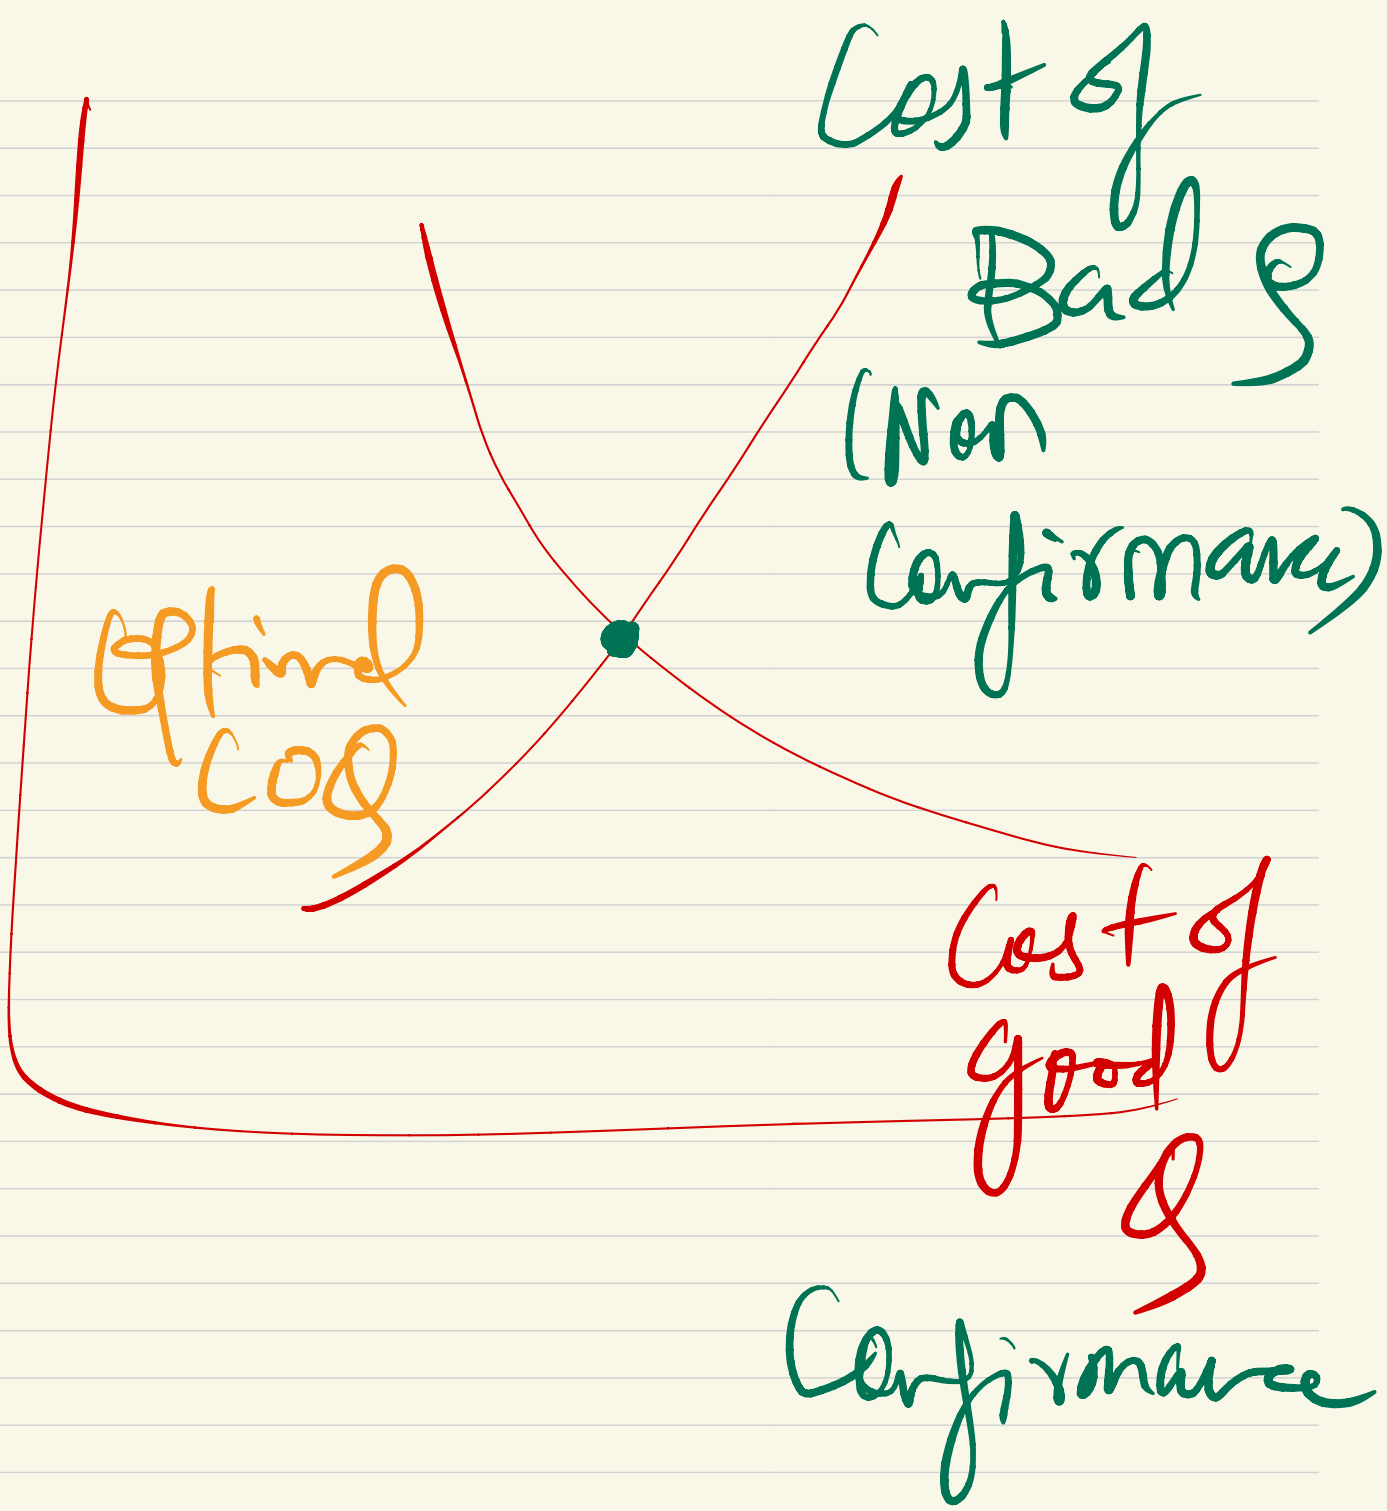 Cost of
Bad Q
(Non
Confirmance)
Optimal
COQ
Cost of
good
Q
Confirmance